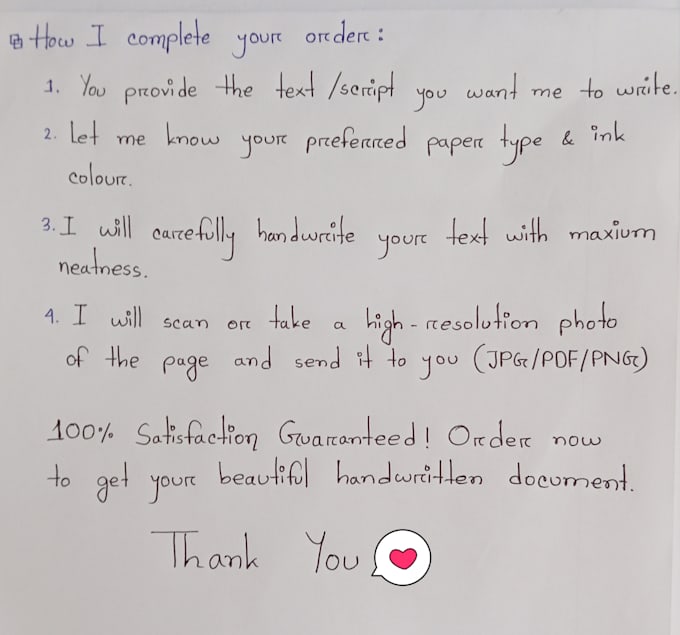 How I complete your order:
1. You provide the text/script you want me to write.
2. Let me know your preferred paper type & ink
colour.
3. I will carefully handwrite your text with maxium
neatness.
4. I will scan or take a high-resolution photo
of the page and send it to you (JPG/PDF/PNG)
100% Satisfaction Guaranteed! Order now
to get your beautiful handwritten document.
Thank You